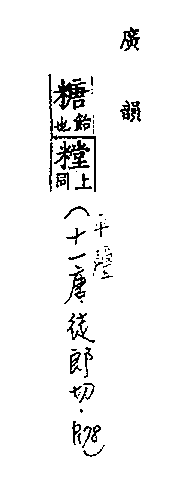 廣韻
糖 飴也
糛 上同
(平聲十一唐.徒郎切.P.178)